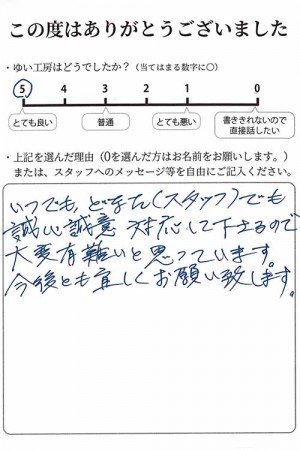 この度はありがとうございました
・ゆい工房はどうでしたか？（当てはまる数字に○）
5 4 3 2 1 0
とても良い 普通 とても悪い 書ききれないので
直接話したい
・上記を選んだ理由（0を選んだ方はお名前をお願いします。）
または、スタッフへのメッセージ等を自由にご記入ください。
いつでも、どなた(スタッフ)でも
誠心誠意 対応して下さるので
大変有難いと思っています。
今後とも宜しくお願い致します。